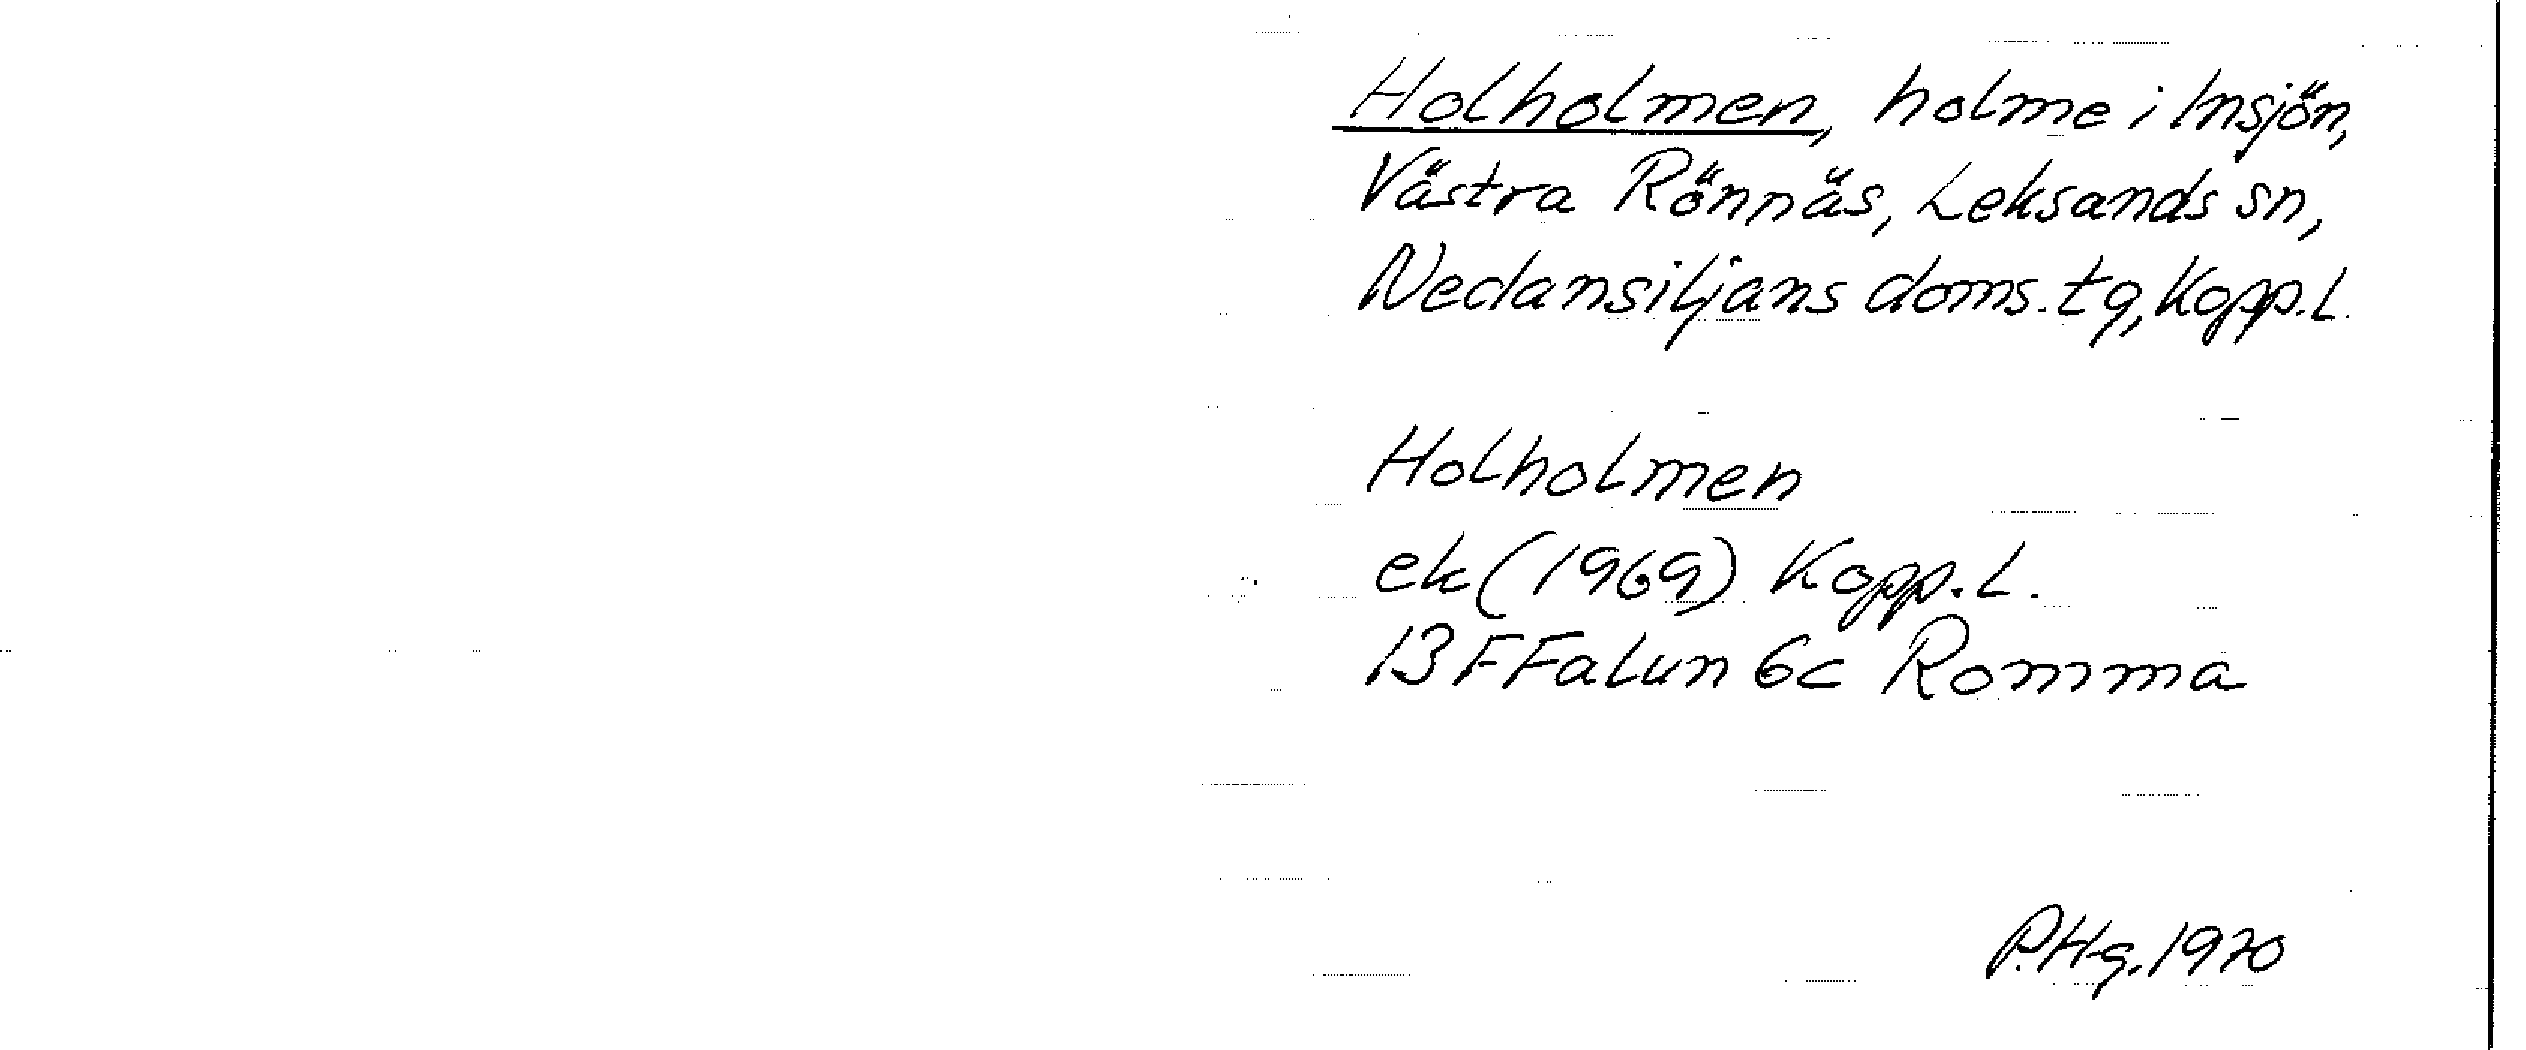 Holholmen, holme i Insjön,
Västra Rönnäs, Leksands sn,
Nedansiljans doms. tg, Kopp.L.
Holholmen
ek (1969) Kopp.L.
13 F Falun 6c Romma
P.Hg. 1970